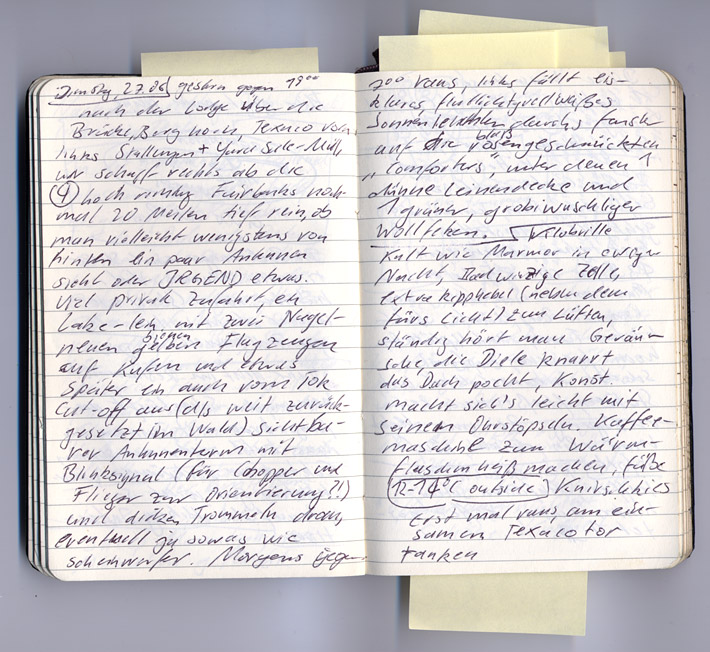 Dienstag 27.06 gestern gegen 19⁰⁰
nach der Lodge über die
Brücke, Berg hoch, Texaco vorn,
links Stallungen +
wir scharf rechts ab die
④ hoch richtung Fairbanks noch
mal 20 Meilen tief rein, ob
man vielleicht wenigstens von
hinten ein paar Antennen
sieht oder IRGEND etwas.
Viel privat Zufahrt, ein
Lake-Len mit zwei Nagel-
neuen bienen gelben Flugzeugen
auf Kufen und etwas
später ein auch vom Tok
Cut-off aus (als weit zurück-
gesetzt im Wald) sichtba-
rer Antennenturm mit
Blinksignal (für Chopper und
Flieger zur Orientierung?!)
und dicken Trommeln dran,
eventuell ja sowas wie
Scheinwerfer. Morgens gegen
7⁰⁰ raus, links fällt eis-
klares flutlichtgrellweißes
Sonnen durchs Fenster
auf die blaß rosengeschmückten
„Comforters", unter denen 1
dünne Leinendecke und
1 grüner, grobwuschliger
Wollfetzen.
Kalt wie Marmor in ewiger
Nacht, Bad winzige Zelle,
extra Kipphebel (neben dem
fürs Licht) zum Lüften,
ständig hört man Geräu-
sche die Diele knarrt
das Dach pocht, Konst.
macht sich's leicht mit
seinem Ohrstöpseln. Kaffee-
maschine zum Wärm-
flaschenheißmachen, füße
12-14° (outside) Knirschkies
Erst mal raus, am ein-
samen Texacotor
tanken